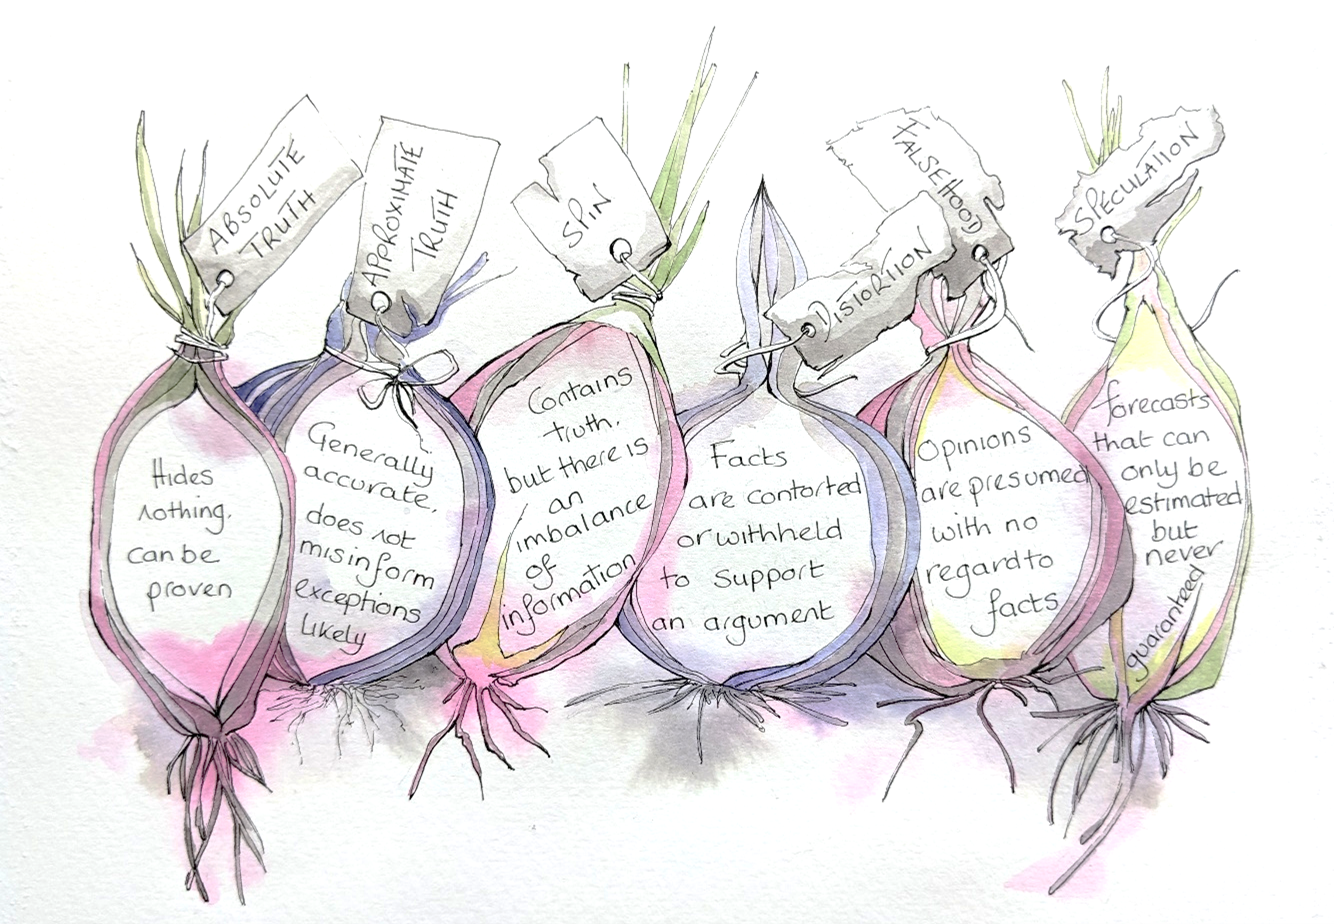 ABSOLUTE
TRUTH
Hides
nothing.
can be
proven
APPROXIMATE
TRUTH
Generally
accurate.
does not
misinform
exceptions
likely
SPIN
Contains
truth.
but there is
an
imbalance
of
information
DISTORTION
Facts
are contorted
or withheld
to support
an argument
FALSEHOOD
Opinions
are presumed
with no
regard to
facts
SPECULATION
forecasts
that can
only be
estimated
but
never
guaranteed